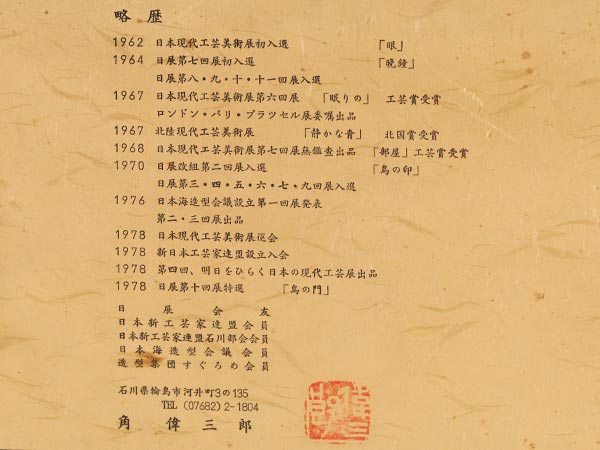 略歴
1962 日本現代工芸美術展初入選 「眼」
1964 日展第七回展初入選 「晩鐘」
日展第八・九・十・十一回展入選
1967 日本現代工芸美術展第六回展 「眠りの」 工芸賞受賞
ロンドン・パリ・ブラツセル展委嘱出品
1967 北陸現代工芸美術展 「静かな青」 北国賞受賞
1968 日本現代工芸美術展第七回展無鑑査出品 「部屋」工芸賞受賞
1970 日展改組第二回展入選 「鳥の印」
日展第三・四・五・六・七・九回展入選
1976 日本海造型会議設立第一回展発表
第二・三回展出品
1978 日本現代工芸美術展退会
1978 新日本工芸家連盟設立入会
1978 第四回、明日をひらく日本の現代工芸展出品
1978 日展第十回展特選 「鳥の門」
日展会友
日本新工芸家連盟会員
日本新工芸家連盟石川部会会員
日本海造型会議会員
造型集団すぐろめ会員
石川県輪島市河井町3の135
TEL (07682) 2-1804
角偉三郎